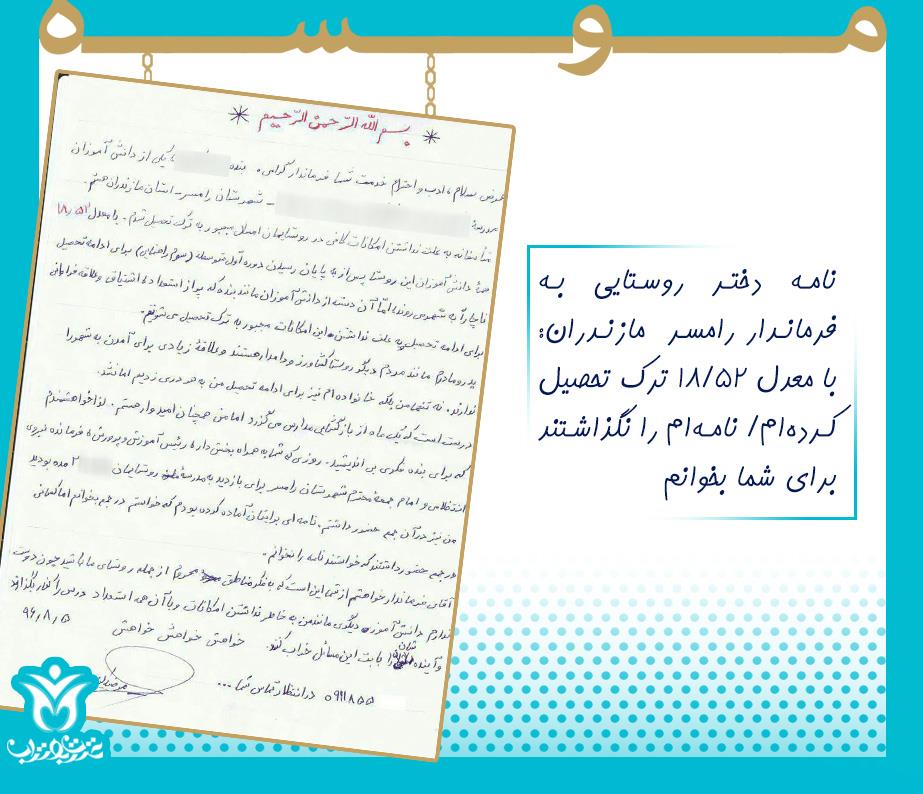 موسسه
* بسم الله الرّحمن الرّحیم *
عرض سلام، ادب و احترام خدمت شما فرماندار گرامی. بنده یکی از دانش آموزان
مدرسهٔ - شهرستان رامسر - استان مازندران هستم.
متأسفانه به علت نداشتن امکانات کافی در روستایمان امسال مجبور به ترک تحصیل شدم. با معدل ۱۸٫۵۲
همهٔ دانش آموزان این روستا پس از به پایان رسیدن دوره اول متوسطه (سوم راهنمایی) برای ادامه تحصیل
ناچاراً به شهر می روند، امّا آن دسته از دانش آموزان مانند بنده که پر از استعداد، اشتیاق و علاقه فراوانی
برای ادامه تحصیل به علت نداشتن این امکانات مجبور به ترک تحصیل می شویم.
پدر و مادرم مانند مردم دیگر روستا کشاورز و دامدار هستند و علاقهٔ زیادی برای آمدن به شهر را
ندارند. نه تنها من بلکه خانواده ام نیز برای ادامه تحصیل من به هر دری زدیم اما نشد.
درست است که یک ماه از بازگشایی مدارس می گذرد اما من همچنان امیدوار هستم. لذا خواهشمندم
که برای بنده فکری بی اندیشید. روزی که شما به همراه بخش دار، رئیس آموزش و پرورش، فرمانده نیروی
انتظامی و امام جمعهٔ محترم شهرستان رامسر برای بازدید به مدرسهٔ روستایمان آمده بودید
من نیز در آن جمع حضور داشتم. نامه ای برایتان آماده کرده بودم که خواستم در جمع بخوانم اما کسانی
در جمع حضور داشتند که خواستند نامه را نخوانم.
آقای فرماندار خواهشم از شما این است که به فکر مناطق محروم از جمله روستای ما باشید چون دوست
ندارم دانش آموزی دیگری مانند من به خاطر نداشتن امکانات و با آن همه استعداد درس را کنار بگذارد
و آینده شان را بابت این مسائل خراب کند. خواهش خواهش خواهش
۹۶٫۸٫۵
۰۹۱۱۸۵۵ در انتظار تماس شما ...
نامه دختر روستایی به
فرماندار رامسر مازندران:
با معدل ۱۸/۵۲ ترک تحصیل
کرده‌ام/ نامه‌ام را نگذاشتند
برای شما بخوانم